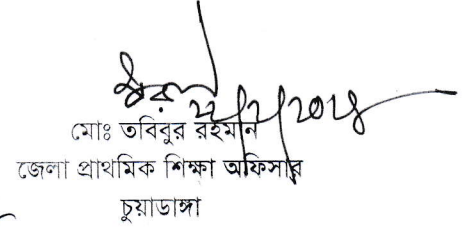 মোঃ তবিবুর রহমান
জেলা প্রাথমিক শিক্ষা অফিসার
চুয়াডাঙ্গা